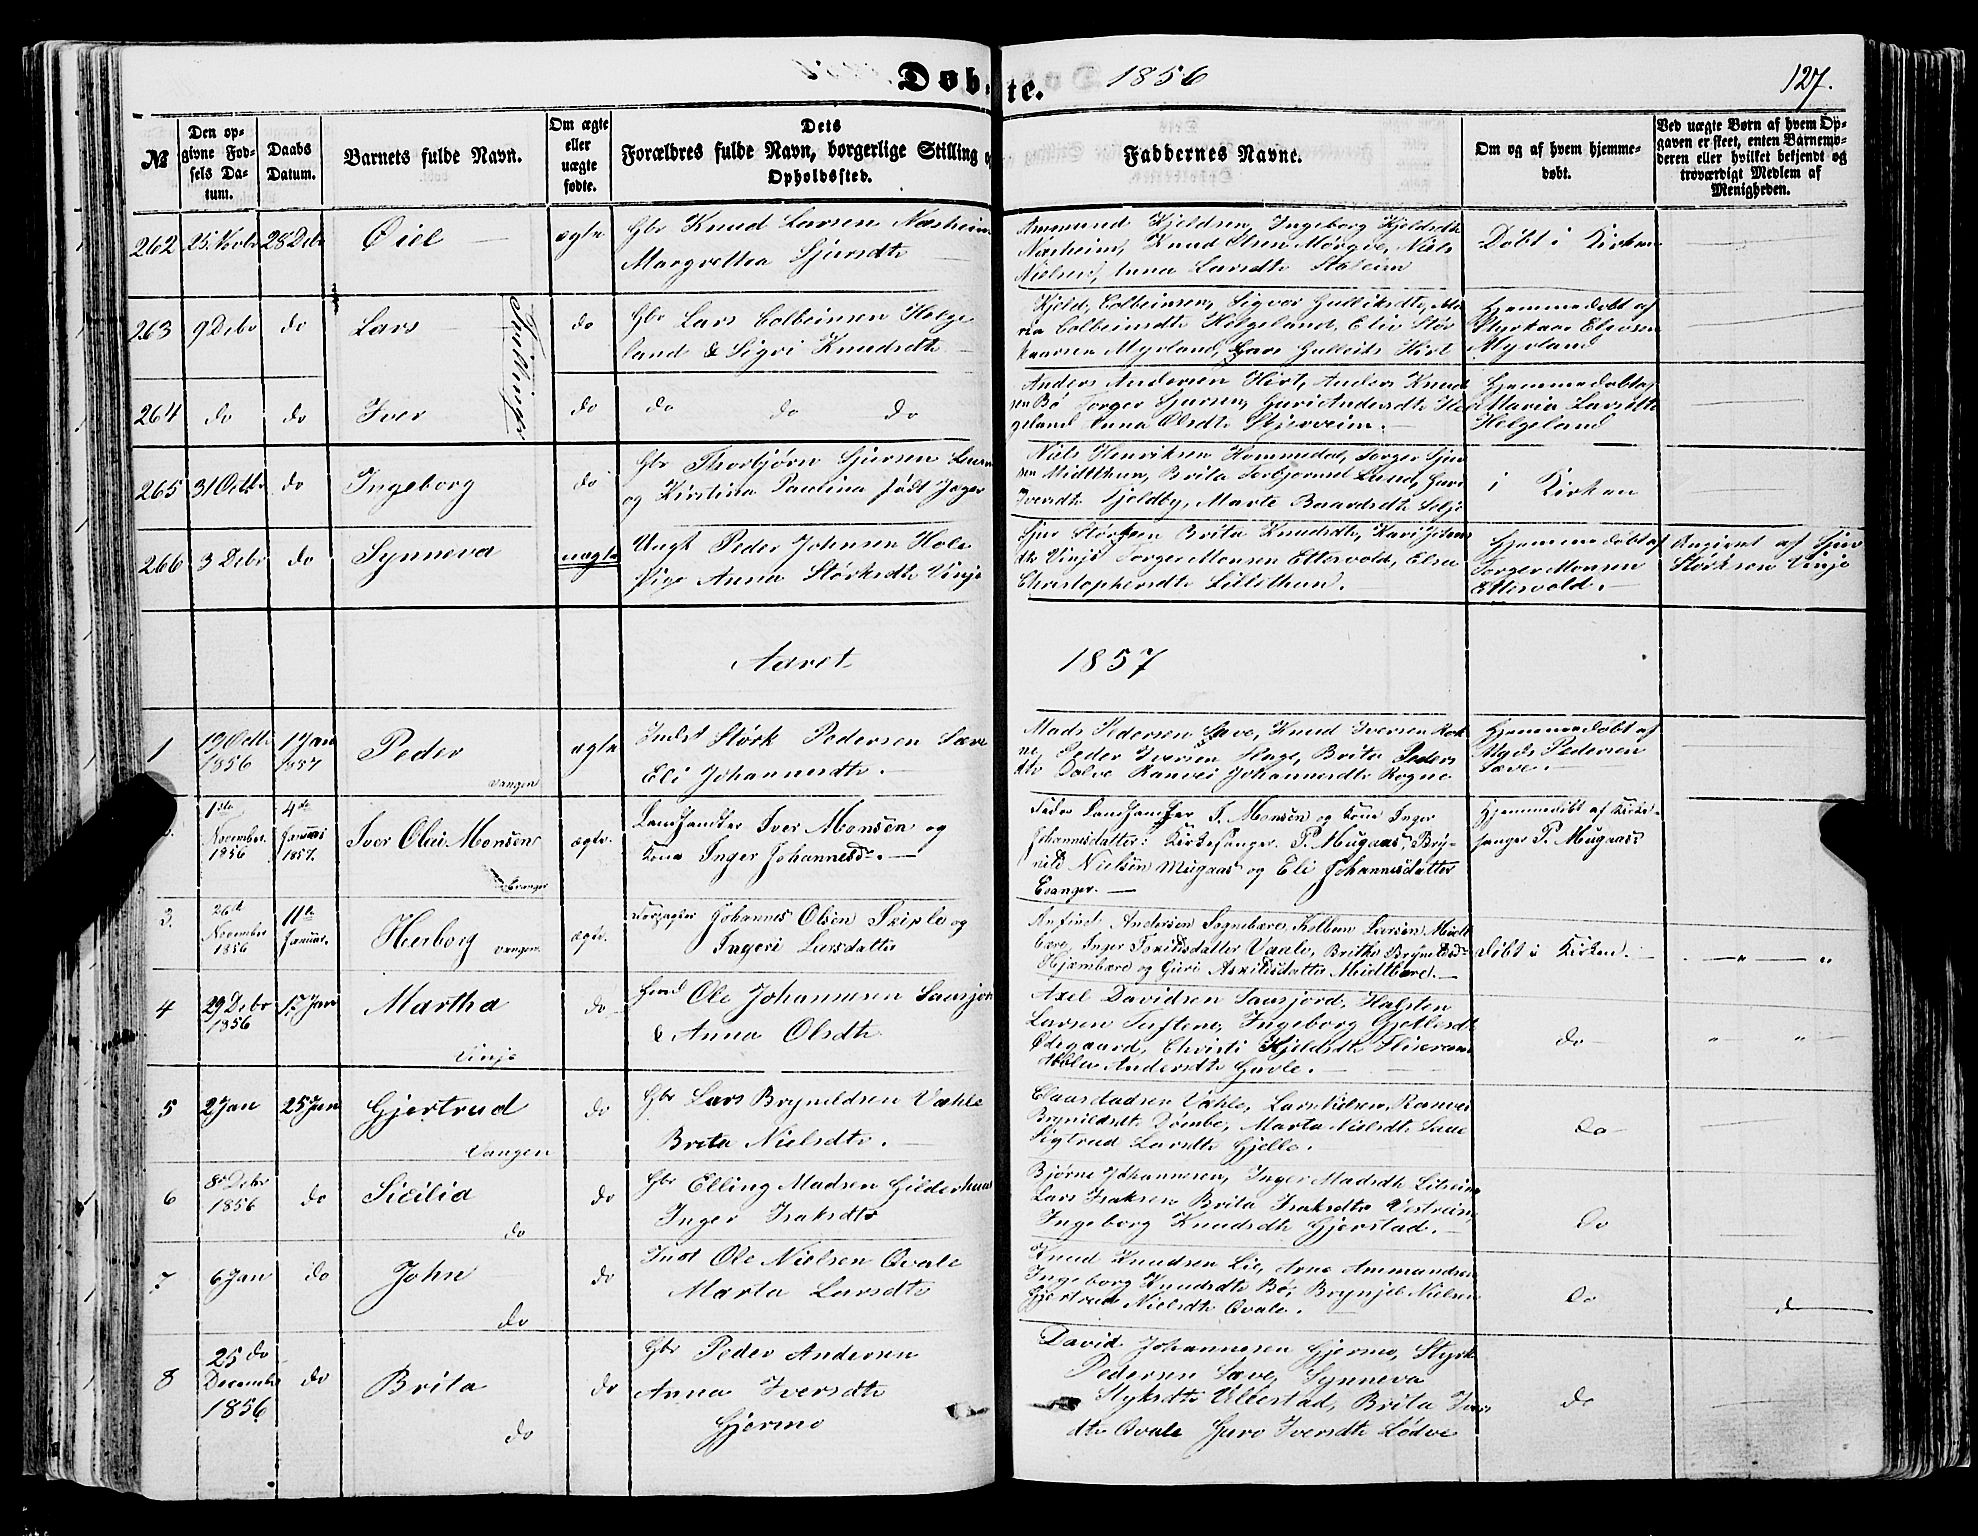 Døbte. 1856
127.
№ | Den opgivne Fødsels Datum. | Daabs Datum. | Barnets fulde Navn. | Om ægte eller uægte fødte. | Dets Forældres fulde Navn, borgerlige Stilling og Opholdssted. | Faddernes Navne. | Om og af hvem hjemmedøbt. | Ved uægte Børn af hvem Opgaven er skeet, enten Barnemoderen eller hvilket bekjendt og troværdigt Medlem af Menigheden.
262 | 25. Novbr | 28 Debr | | ægte | Gbr Knud Larsen Næsheim
Margrettha Sjursdtr | Amund Kjeldsen, Ingeborg Kjeldsdtr
Næsheim, Knud Olsen Mørgve, Niels
Nielsen, Anna Larsdtr | Døbt i Kirken
263 | 9 Debr | do | Lars | Tvillinger | do | Gbr Lars Colbeinsen Helge
land & Sigri Knudsdtr | Kjeld Colbeinsen, Sigver Gulleiksdtr, Ma
ria Colbeinsdtr Helgeland, Eliv Stør
kaarsen Myrland, Lars Gulleiks Hirt | Hjemmedøbt af
Styrkaar Elevsen
Myrland
264 | do | do | Iver | do | do do do | Anders Andersen Hirt, Anders Knud
sen Bø Torger Sjursen, Guri Andersdtr Hel
geland Anna Olsdtr Skjerveim. | Hjemmedøbt af
Maria Larsdtr
Helgeland
265 | 31 Octbr | do | Ingeborg | do | Gbr Thorbjørn Sjursen
og Kirstina Paulina født Jæger | Niels Henriksen Hommedal, Torger Sjur
sen Midtthun, Brita Torbjørnsd Lund, Guri
Iversdtr Kjeldby, Marte Baardsdtr | i Kirken
266 | 3 Debr | do | Synneva | uægte | Ungk Peder Johnsen Hole
Pige Anna Størksdtr Vinje | Sjur Størksen Brita Knudsdtr, Kari
Vinje Torger Monsen Ettervold, Elsa
Christophersdtr Lillethun. | Hjemmedøbt af
Torger Monsen
Ettervold. | Angivet af Sjur
Størksen Vinje
Aaret 1857
1 | 19 Octbr
1856 | 1 Jan
1857 | Peder
Vangen | ægte | Indst Størk Pedersen Sæve
Eli Johannesdtr. | Mads Pedersen Sæve, Knud Iversen Rok
ne, Peder Iversen Hage, Brita Peders
dtr Dolve Ranvei Johannesdtr Rogne | Hjemmedøbt af
Mads Pedersen
Sæve.
1ste
November
1856 | 4de
Januar
1857. | Iver Olai Monsen
Evanger | ægte. | Landhandler Iver Monsen og
Kone Inger Johannesdr. | Fader Landhandler I. Monsen og Kone Inger
Johannesdatter: Kirkesanger P. Mugaas, Bry-
nild Nielsen Mugaas og Eli Johannesdatter
Evanger. | Hjemmedøbt af Kirke-
sanger P. Mugaas
3. | 26de
November
1856 | 11te
Januar. | Herborg
Vangen | ægte. | Johannes Olsen Seiple og
Ingeri Larsdatter | Anfind Andersen Sognebære, Kolben Larsen Midt
bære, Inger Torkildsdatter Væele, Britha Brynildsd
Hjembære og Guri Askildsdatter Midtbære. | Døbt i Kirken. | " "
4 | 29 Debr
1856 | 17 Jan | Martha
Vinje | do | Ole Johannesen Saasjord
& Anna Olsdtr | Axel Davidsen Saasjord, Halsten
Larsen Tuftene, Ingeborg Gjetlesdtr
Ødegaard, Christi Kjeldsdtr Fliseram
Andersdtr Gavle. | do | " "
5 | 2 Jan | 25 Jan | Gjertrud
Vangen | do | Gbr Lars Brynildsen Væhle
Brita Nielsdtr. | Væhle, Lars Nielsen, Ranvei
Brynildsdtr Dømbe, Marta Nielsdtr Saue
Sigtrud Larsdtr Gjelle. | do
6 | 8 Debr
1856 | do | Sicilia
do | do | Gbr Elling Madsen Gilderhuus
Inger Isaksdtr | Bjørne Johannesen, Inger Madsdtr
Lars Isaksen Brita Isaksdtr Vestrein,
Ingeborg Knudsdtr Gjerstad. | do
7 | 6 Jan | do | John
do | do | Indst Ole Nielsen Qvale
Marta Larsdtr | Knud Knudsen Lie, Arne Ammundsen
Ingeborg Knudsdtr Bø, Brynjel Nielsen
Gjertrud Nielsdtr Qvale. | do | d
8 | 25 do
December
1856 | do | Brita
do | do | Gbr Peder Andersen
Anna Iversdtr
Gjermo | David Johannesen Gjermo, Styrk
Pedersen Sæve, Synneva
Styksdtr Ullestad, Brita Ivers
dtr Qvale Guro Iversdtr Lødve | do